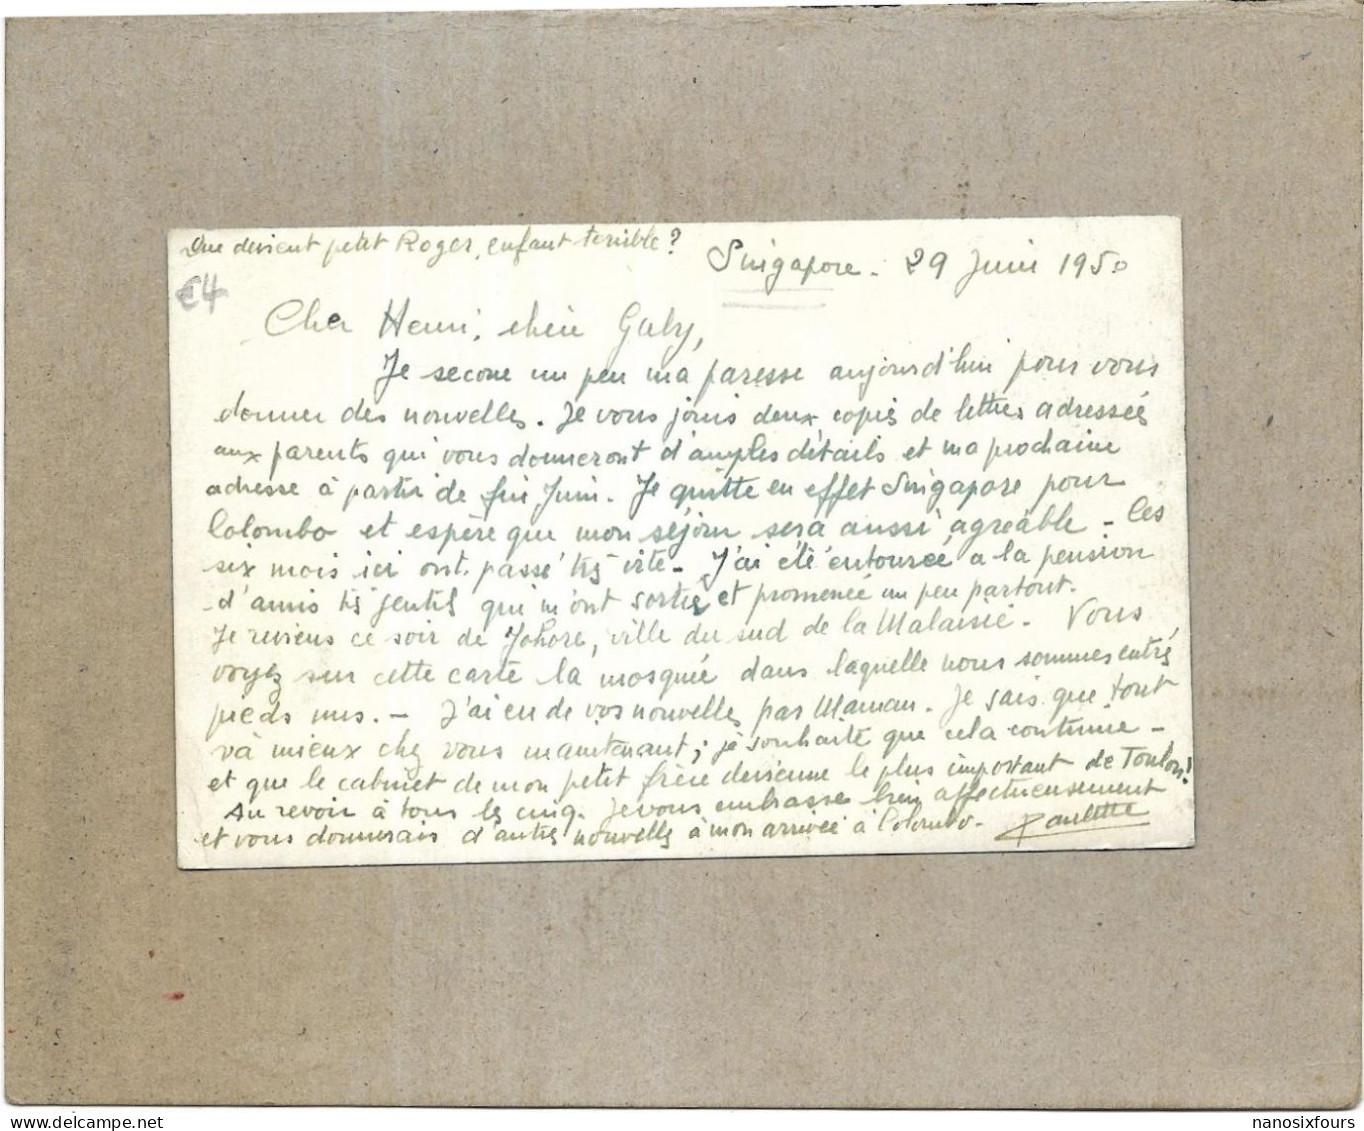 Que devient petit Roger, enfant terrible ?
Singapore - 29 Juin 1950
€4
Cher Henri, chère Gaby,
Je secoue un peu ma paresse aujourd'hui pour vous
donner des nouvelles. Je vous joins deux copies de lettres adressées
aux parents qui vous donneront d'amples détails et ma prochaine
adresse à partir de fin Juin. Je quitte en effet Singapore pour
Colombo et espère que mon séjour sera aussi agréable - Ces
six mois ici ont passé très vite - J'ai été entourée à la pension
d'amis très gentils qui m'ont sortie et promenée un peu partout.
Je reviens ce soir de Johore, ville du sud de la Malaisie. Vous
voyez sur cette carte la mosquée dans laquelle nous sommes entrés
pieds nus. - J'ai eu de vos nouvelles par Maman. Je sais que tout
va mieux chez vous maintenant ; je souhaite que cela continue -
et que le cabinet de mon petit frère devienne le plus important de Toulon !
Au revoir à tous les cinq. Je vous embrasse bien affectueusement
et vous donnerais d'autres nouvelles à mon arrivée à Colombo. Paulette
nanosixfours